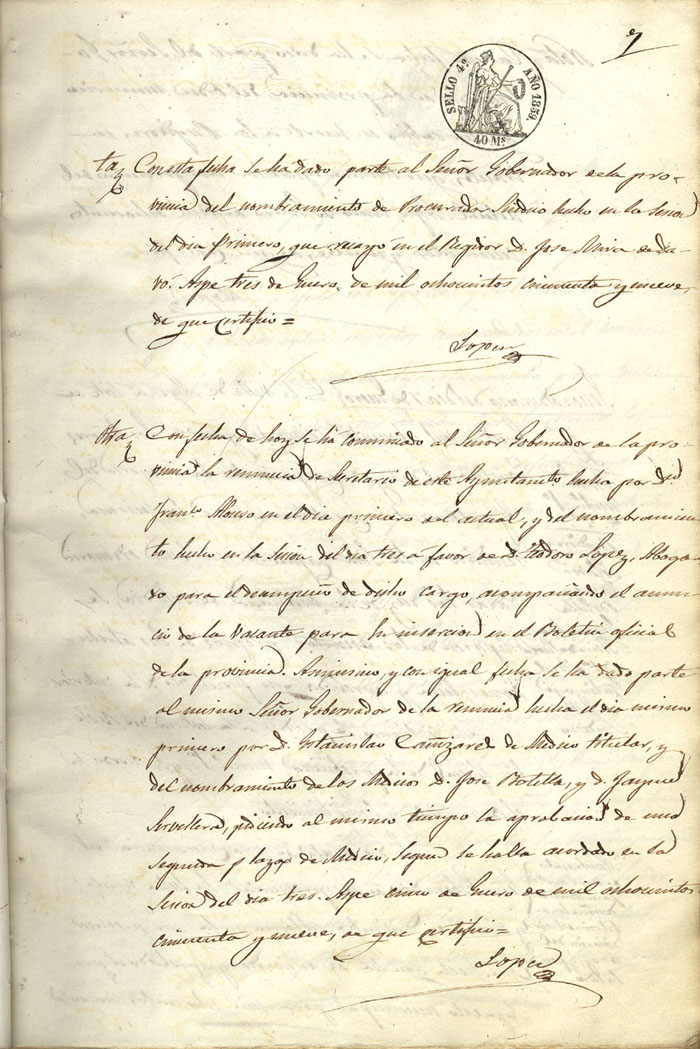 7
SELLO 4º AÑO 1859.
40 Ms
Con esta fecha se ha dado parte al Señor Gobernador de la pro-
vincia del nombramiento de Procurador Sindico hecho en la sesion
del dia primero, que recayó en el Regidor D. Jose Mira
Aspe tres de Enero, de mil ochocientos cincuenta y nueve,
de que certifico=
Lopez
Otra
Con fecha de hoy se ha comunicado al Señor Gobernador de la pro-
vincia la renuncia de Secretario de este Ayuntamto hecha por Dn
Franco Alonso en el dia primero del actual, y del nombramien-
to hecho en la sesion del dia tres a favor de D. Teodoro Lopez, Aboga-
do para el desempeño de dicho cargo, acompañando el anun-
cio de la vacante para su insercion en el Boletin oficial
de la provincia. Asimismo, y con igual fecha se ha dado parte
al mismo Señor Gobernador de la renuncia hecha el dia mismo
primero por D. Estanislao Cañizares de Medico titular, y
del nombramiento de los Medicos D. Jose Botella, y D. Jayme
Servellera, pidiendo al mismo tiempo la aprobacion de una
segunda plaza de Medico, segun se halla acordado en la
sesion del dia tres. Aspe cinco de Enero de mil ochocientos
cincuenta y nueve, de que certifico=
Lopez